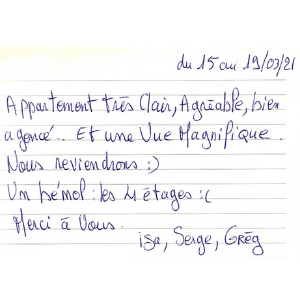 du 15 au 19/03/21
Appartement très Clair, Agréable, bien
agencé.. Et une Vue Magnifique.
Nous reviendrons :)
Un bémol : les 4 étages :(
Merci à Vous.
isa, Serge, Grég